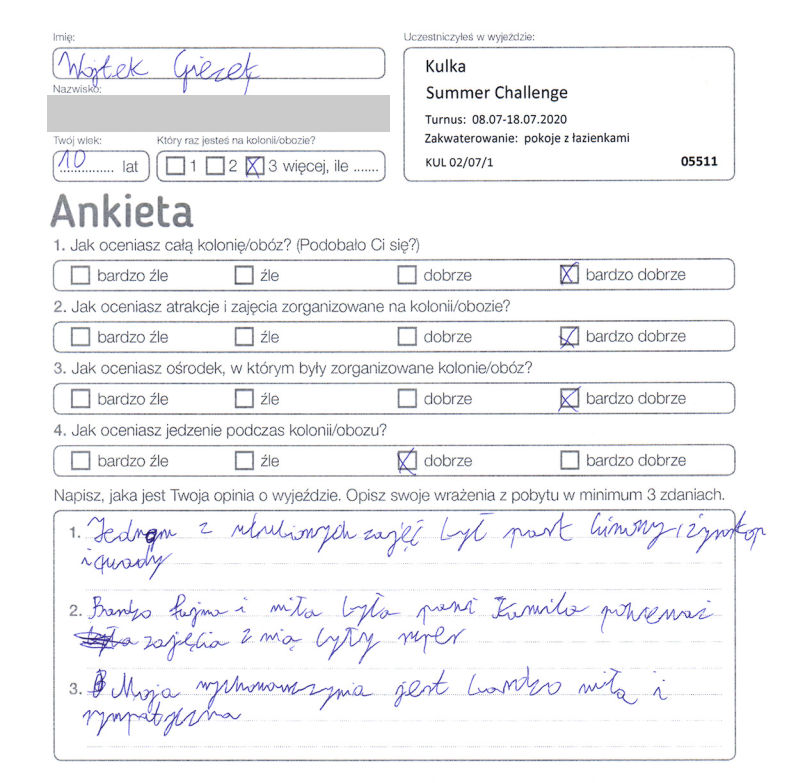 Imię:
Uczestniczyłeś w wyjeździe:
Wojtek
Kulka
Nazwisko:
Summer Challenge
Turnus: 08.07-18.07.2020
Twój wiek:
Który raz jesteś na kolonii/obozie?
Zakwaterowanie: pokoje z łazienkami
10 lat
1 2 3 więcej, ile .......
KUL 02/07/1 05511
Ankieta
1. Jak oceniasz całą kolonię/obóz? (Podobało Ci się?)
bardzo źle źle dobrze bardzo dobrze
2. Jak oceniasz atrakcje i zajęcia zorganizowane na kolonii/obozie?
bardzo źle źle dobrze bardzo dobrze
3. Jak oceniasz ośrodek, w którym były zorganizowane kolonie/obóz?
bardzo źle źle dobrze bardzo dobrze
4. Jak oceniasz jedzenie podczas kolonii/obozu?
bardzo źle źle dobrze bardzo dobrze
Napisz, jaka jest Twoja opinia o wyjeździe. Opisz swoje wrażenia z pobytu w minimum 3 zdaniach.
1. Jednym z ulubionych zajęć był park linowy, żyroskop
i quady
2. Bardzo fajna i miła była pani Kamila ponieważ
zajęcia z nią były super
3. Moja wychowawczynia jest bardzo miła i
sympatyczna